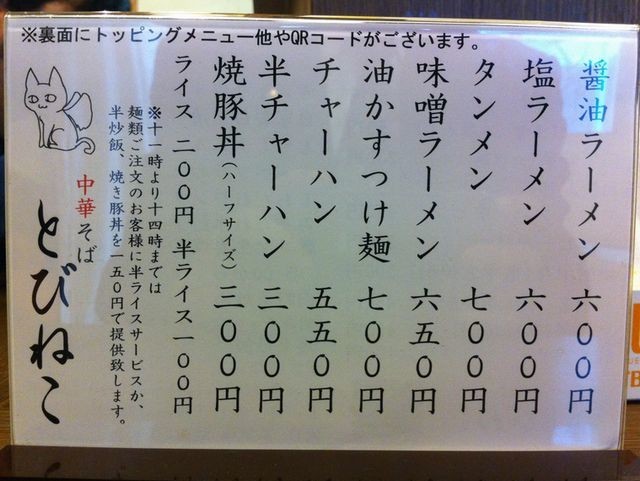 ※裏面にトッピングメニュー他やQRコードがございます。
醤油ラーメン 六００円
塩ラーメン 六００円
タンメン 七００円
味噌ラーメン 六五０円
油かすつけ麺 七００円
チャーハン 五五０円
半チャーハン 三００円
焼豚丼（ハーフサイズ） 三００円
ライス 二００円 半ライス一００円
※十一時より十四時までは
麺類ご注文のお客様に半ライスサービスか、
半炒飯、焼き豚丼を一五０円で提供致します。
中華そば
とびねこ